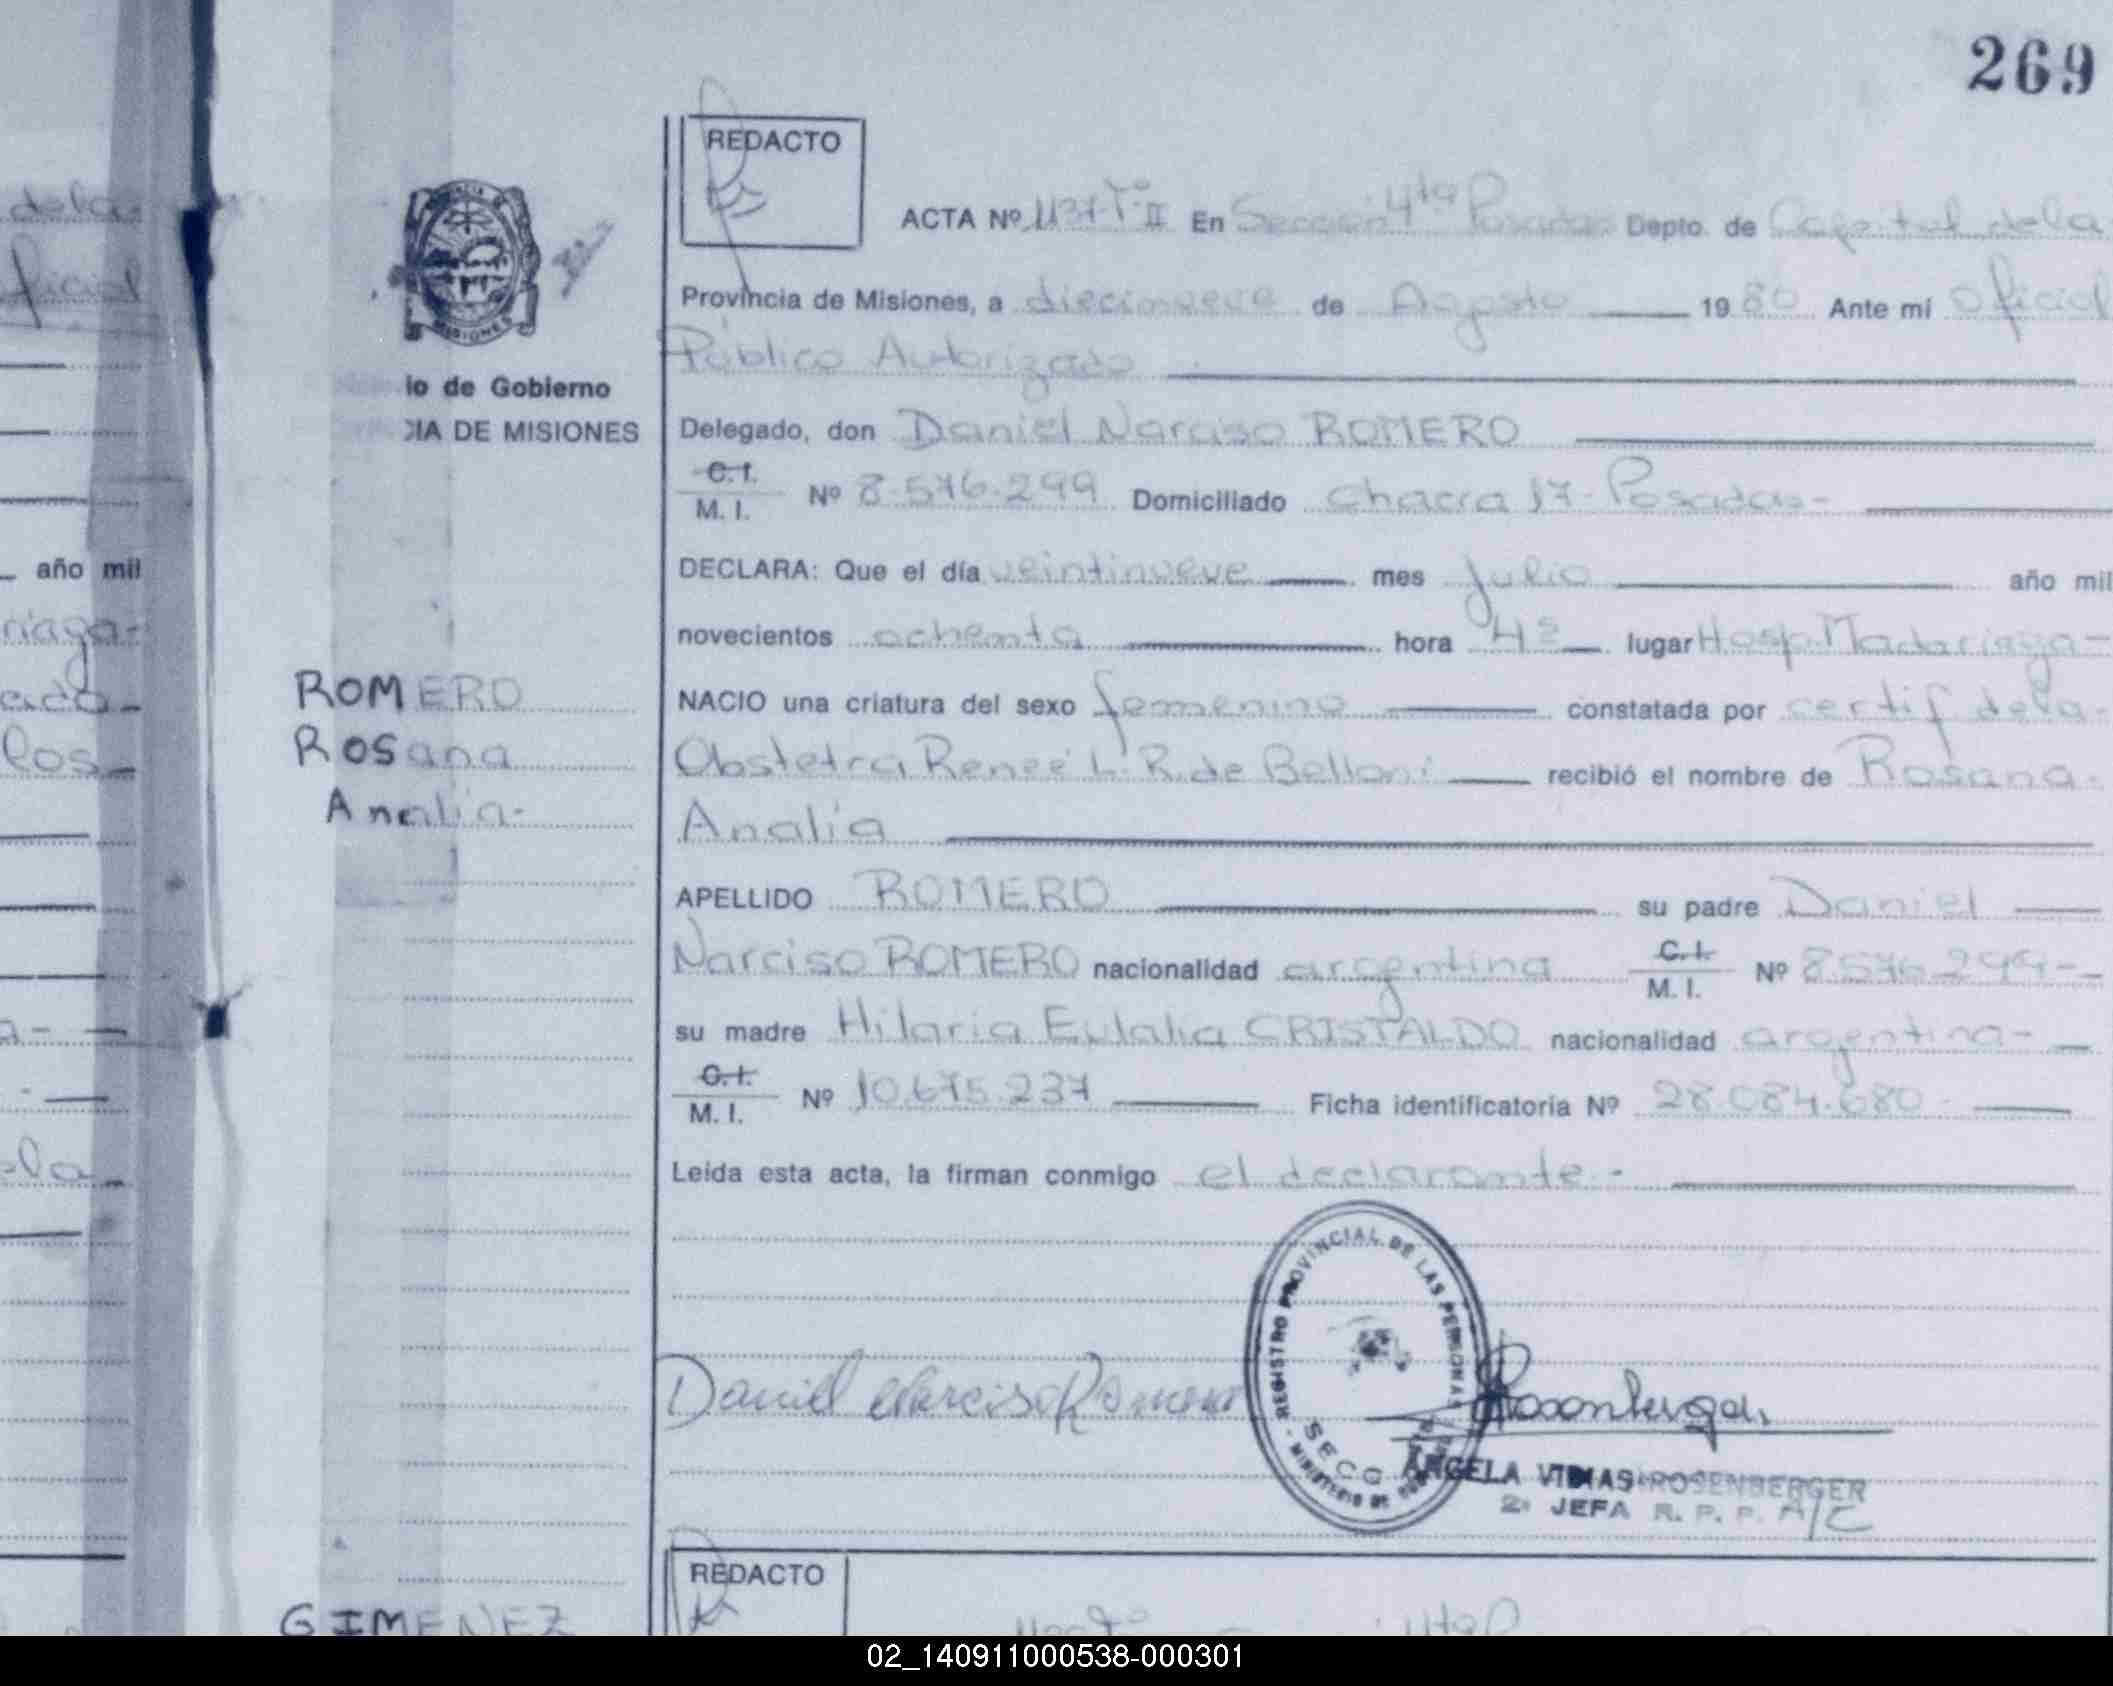 269
REDACTO
ACTA Nº 1137-Tº-II En Sección 4ta Posadas Depto. de Capital de la
Provincia de Misiones, a diecinueve de Agosto 1980 Ante mí Oficial
Público Autorizado
Delegado, don Daniel Narciso ROMERO
C.I.
M. I. Nº 8.576.299 Domiciliado Chacra 17- Posadas-
DECLARA: Que el día veintinueve mes Julio año mil
novecientos ochenta hora 4ª lugar Hosp. Madariaga-
NACIO una criatura del sexo femenino constatada por certif de la-
Obstetra Reneé L. R. de Belloni recibió el nombre de Rosana-
Analía
APELLIDO ROMERO su padre Daniel
Narciso ROMERO nacionalidad argentina C.I. M. I. Nº 8.576.299-
su madre Hilaria Eulalia CRISTALDO nacionalidad argentina-
C.I.
M. I. Nº 10.675.237 Ficha identificatoria Nº 28.084.680-
Leída esta acta, la firman conmigo el declarante-
Daniel Narciso Romero
REGISTRO PROVINCIAL DE LAS PERSONAS
MINISTERIO DE
SECC
ANGELA ROSENBERGER
2º JEFA R. P. P. A/C
REDACTO
MISIONES
io de Gobierno
CIA DE MISIONES
ROMERO
Rosana
Analía-
GIMENEZ
de la
ficial
año mil
riaga-
los
la
02_140911000538-000301